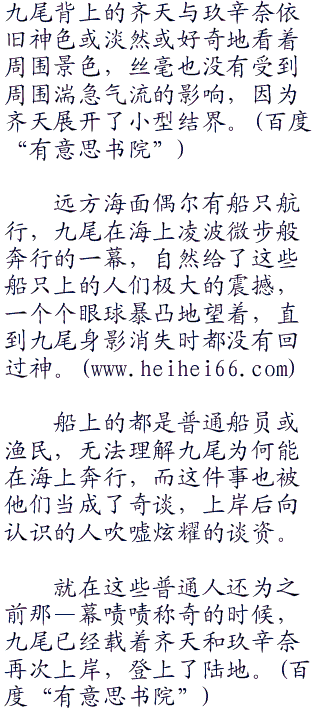 九尾背上的齐天与玖辛奈依
旧神色或淡然或好奇地看着
周围景色，丝毫也没有受到
周围湍急气流的影响，因为
齐天展开了小型结界。(百度
“有意思书院”)
远方海面偶尔有船只航
行，九尾在海上凌波微步般
奔行的一幕，自然给了这些
船只上的人们极大的震撼，
一个个眼球暴凸地望着，直
到九尾身影消失时都没有回
过神。(www.heihei66.com)
船上的都是普通船员或
渔民，无法理解九尾为何能
在海上奔行，而这件事也被
他们当成了奇谈，上岸后向
认识的人吹嘘炫耀的谈资。
就在这些普通人还为之
前那一幕啧啧称奇的时候，
九尾已经载着齐天和玖辛奈
再次上岸，登上了陆地。(百
度“有意思书院”)